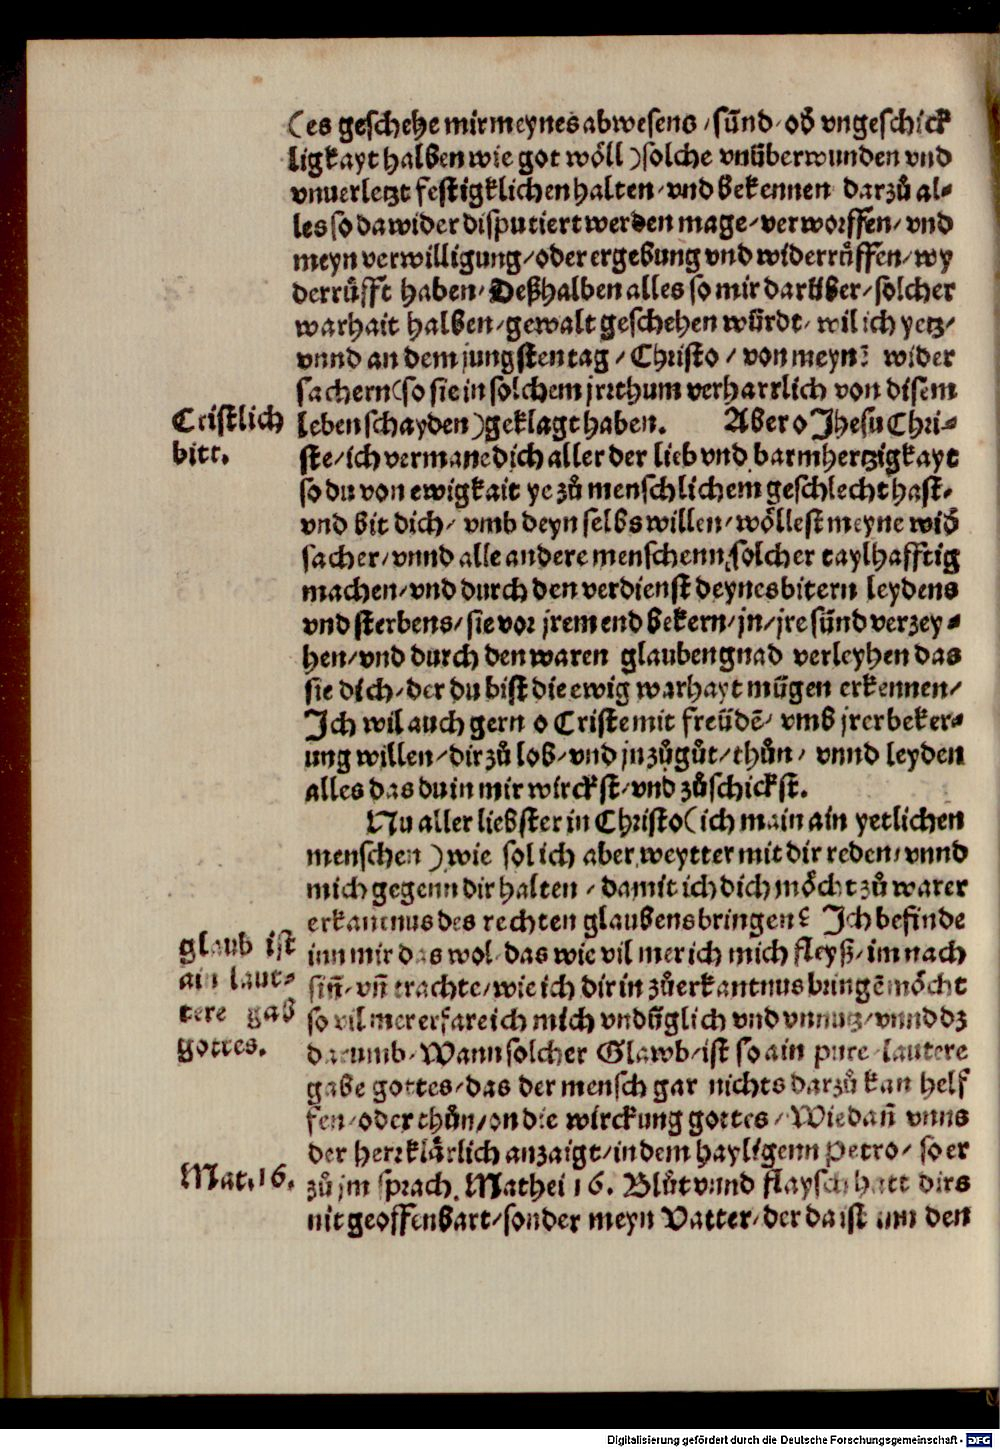 (es geschehe mir meynes abwesens / sünd / od̕ vngeschick
ligkayt halben wie got wöll ) solche vnüberwunden vnd
vnuerletzt festigklichen halten / vnd bekennen darzů al⸗
les so dawider disputiert werden mage / verworffen / vnd
meyn verwilligung / oder ergebung vnd widerrůffen / wy
derrůfft haben / Deßhalben alles so mir darüber / solcher
warhait halben / gewalt geschehen würdt / wil ich yetz /
vnnd an dem jungsten tag / Christo / von meynē wider
sachern (so sie in solchem jrrthum verharrlich von disem
Cristlich
bitt.
leben schayden ) geklagt haben. Aber o Jhesu Chri⸗
ste / ich vermane dich aller der lieb vnd barmhertzigkayt
so du von ewigkait ye zů menschlichem geschlecht hast /
vnd bit dich / vmb deyn selbs willen / wöllest meyne wid̕
sacher / vnnd alle andere menschenn solcher taylhafftig
machen / vnd durch den verdienst deynes bitern leydens
vnd sterbens / sie vor jrem end bekern / jn / jre sünd verzey⸗
hen / vnd durch den waren glauben gnad verleyhen das
sie dich / der du bist die ewig warhayt mügen erkennen /
Ich wil auch gern o Criste mit freüdē / vmb jrer beker⸗
ung willen / dir zů lob / vnd jn zů gůt / thůn / vnnd leyden
alles das du in mir wirckst / vnd zůschickst.
Nu aller liebster in Christo (ich main ain yetlichen
menschen ) wie sol ich aber weytter mit dir reden / vnnd
mich gegenn dir halten / damit ich dich möcht zů warer
erkantnus des rechten glaubens bringen? Ich befinde
glaub ist
ain laut⸗
tere gab
gottes.
inn mir das wol / das wie vil mer ich mich fleyß / im nach
siñ / vñ trachte / wie ich dir in zů erkantnus bringē möcht
so vil mer erfare ich mich vndüglich vnd vnnutz / vnnd dz
darumb / Wann solcher Glawb / ist so ain pure lautere
gabe gottes / das der mensch gar nichts darzů kan helf
fen / oder thůn / on die wirckung gottes / Wie dañ vnns
der herr klärlich anzaigt / in dem hayligenn Petro / so er
Mat. 16.
zů jm sprach. Mathei 16. Blůt vnnd flaysch hatt dirs
nit geoffenbart / sonder meyn Vatter / der da ist inn den
Digitalisierung gefördert durch die Deutsche Forschungsgemeinschaft - DFG